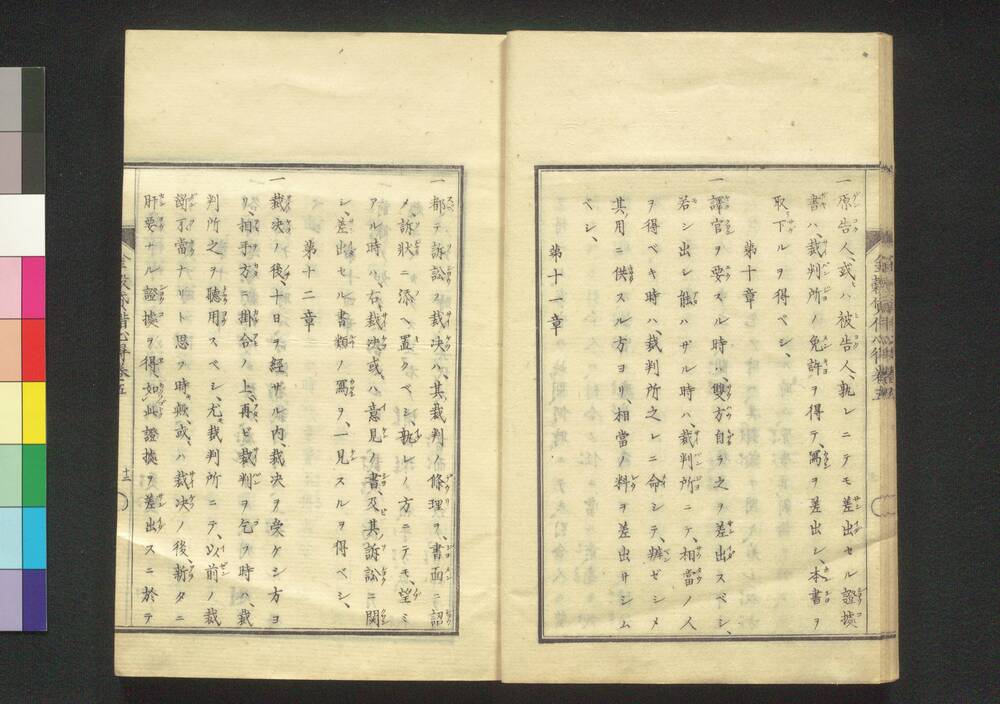 一原告人、或ハ被告人、孰レニテモ差出セル證據
書ハ、裁判所ノ免許ヲ得テ、寫ヲ差出シ、本書ヲ
取下ルヲ得ベシ、
第十章
一譯官ヲ要スル時ハ、雙方自ラ之ヲ差出スベシ、
若シ出シ能ハザル時ハ、裁判所ニテ、相當ノ人
ヲ得ベキ時ハ、裁判所之レニ命シテ、辨ゼシメ
其用ニ供スル方ヨリ、相當ノ料ヲ差出サシム
ベシ、
第十一章
一都テ訴訟ノ裁决ハ、其裁判ノ條理ヲ、書面ニ認
メ、訴狀ニ添ヘ置クベシ、孰レノ方ニテモ、望ミ
アル時ハ、右裁决或ハ、意見ノ書、及ビ其訴訟ニ関
シ、差出セル書類ノ寫ヲ、一見スルヲ得ベシ、
第十二章
一裁决ノ後、十日ヲ經ザル内、裁决ヲ受ケシ方ヨ
リ、相手方ニ掛合ノ上、再ビ裁判ヲ乞フ時ハ、裁
判所之ヲ聽用スベシ、尤裁判所ニテ、以前ノ裁
許不當ナリト思フ時歟、或ハ裁决ノ後、新タニ
肝要ナル證據ヲ得、如此證據ヲ差出スニ於テ
十三